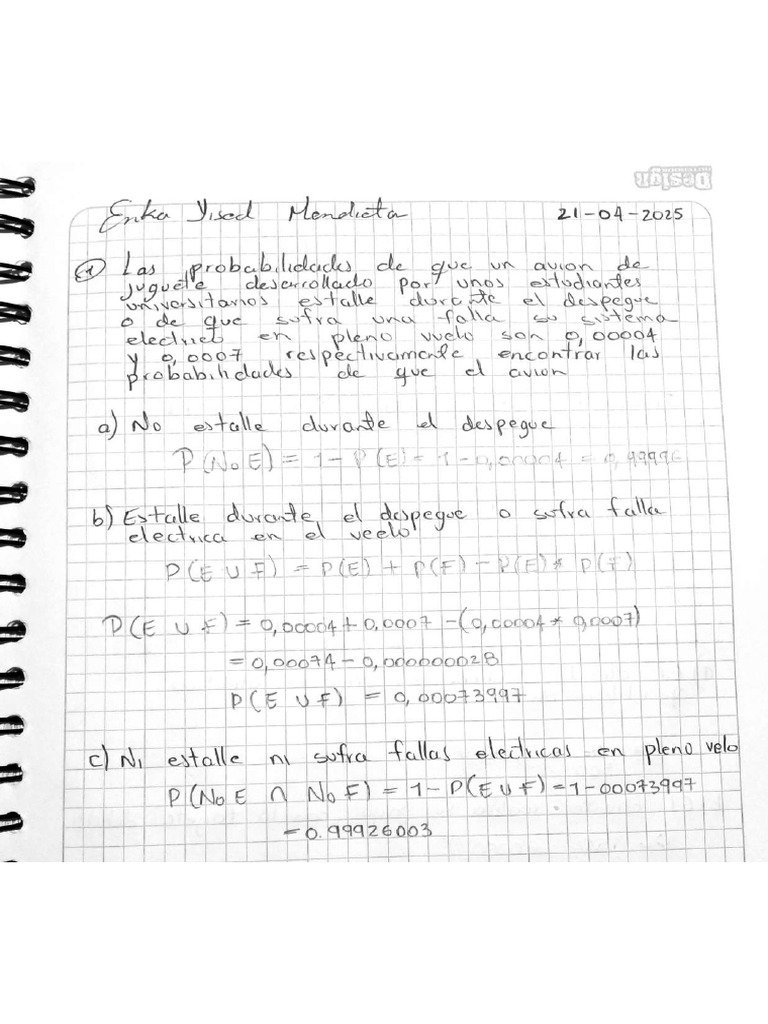 Design
Erika Yised Mendieta 21-04-2025
① Las probabilidades de que un avion de
juguete desarrollado por unos estudiantes
universitarios estalle durante el despegue
o de que sufra una falla su sistema
electrict en pleno vuelo son 0,00004
y 0,0007 respectivamente encontrar las
probabilidades de que el avion
a) No estalle durante el despegue
P(No E) = 1 - P(E) = 1 - 0,00004 = 0,99996
b) Estalle durante el despegue o sufra falla
electrica en el veelo
P(E ∪ F) = P(E) + P(F) - P(E) * P(F)
P(E ∪ F) = 0,00004 + 0,0007 - (0,00004 * 0,0007)
= 0,00074 - 0,000000028
P(E ∪ F) = 0,00073997
c) Ni estalle ni sufra fallas electricas en pleno velo
P(No E ∩ No F) = 1 - P(E ∪ F) = 1 - 00073997
= 0.99926003